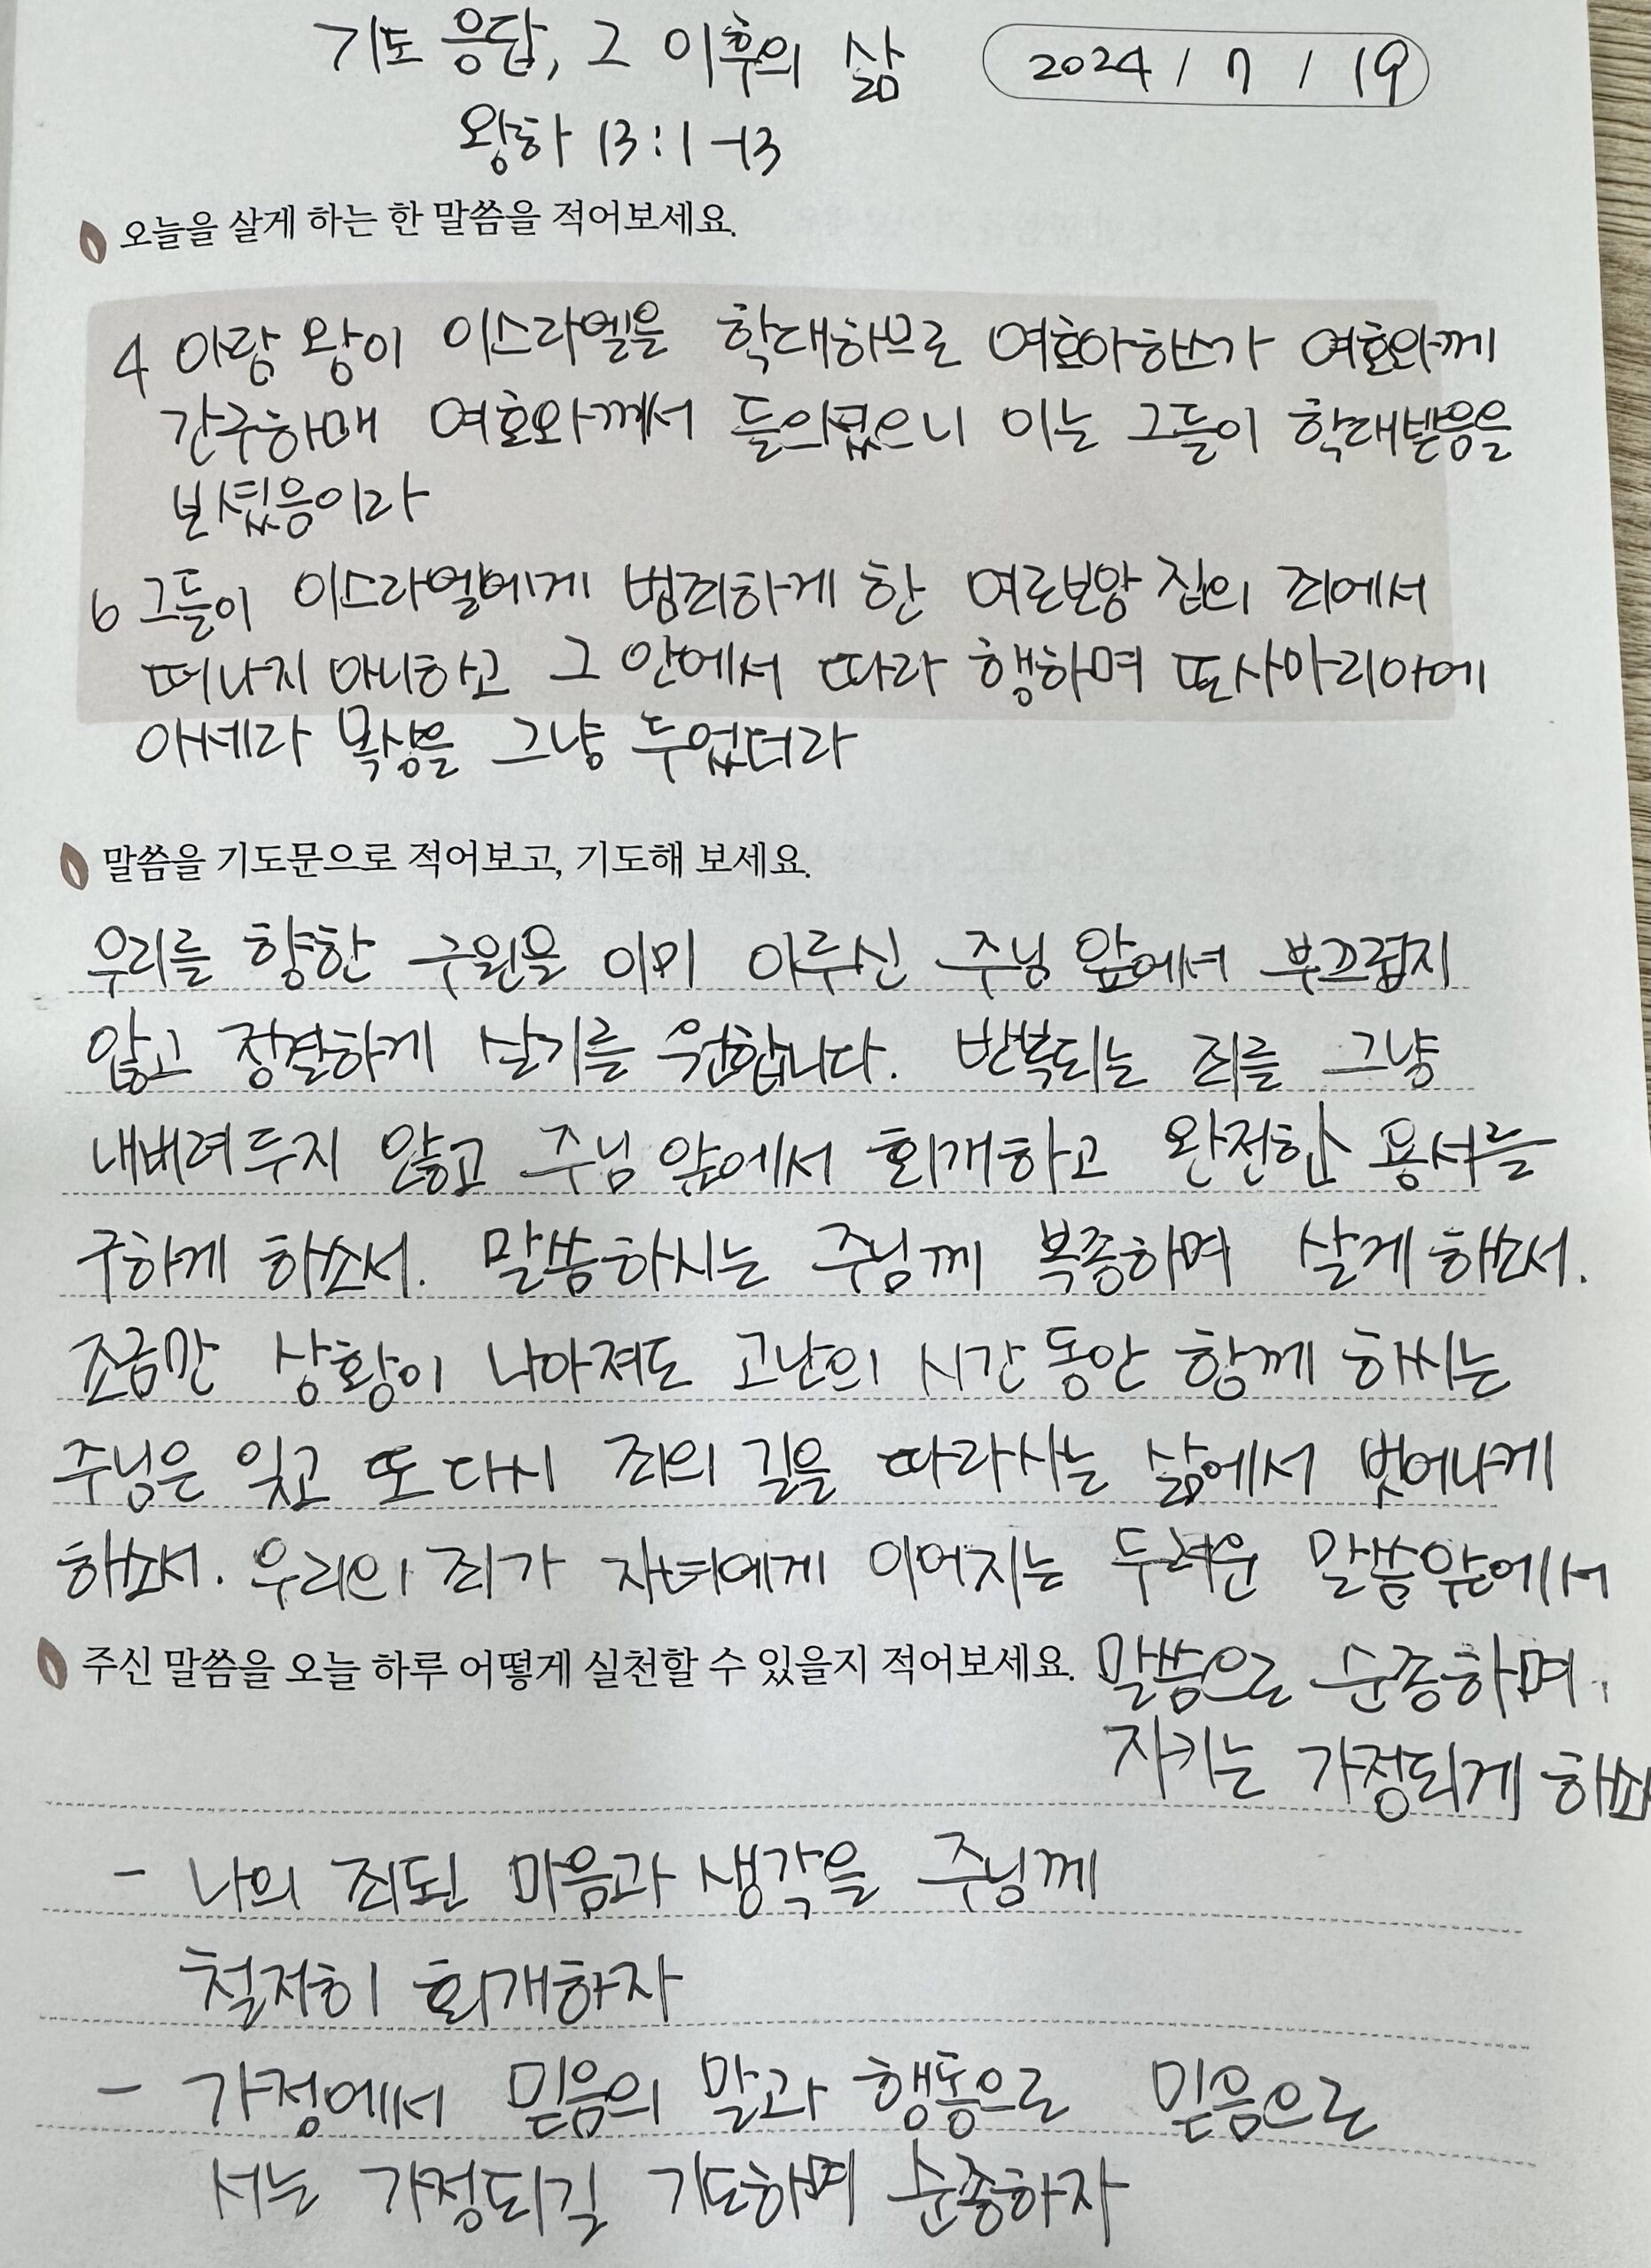 기도 응답, 그 이후의 삶
2024 / 7 / 19
왕하 13:1-13
오늘을 살게 하는 한 말씀을 적어보세요.
4 아람 왕이 이스라엘을 학대하므로 여호아하스가 여호와께
간구하매 여호와께서 들으셨으니 이는 그들이 학대받음을
보셨음이라
6 그들이 이스라엘에게 범죄하게 한 여로보암 집의 죄에서
떠나지 아니하고 그 안에서 따라 행하며 또 사마리아에
아세라 목상을 그냥 두었더라
말씀을 기도문으로 적어보고, 기도해 보세요.
우리를 향한 구원을 이미 이루신 주님 앞에서 부끄럽지
않고 정결하게 살기를 원합니다. 반복되는 죄를 그냥
내버려두지 않고 주님 앞에서 회개하고 완전한 용서를
구하게 하소서. 말씀하시는 주님께 복종하며 살게 하소서.
조금만 상황이 나아져도 고난의 시간 동안 함께 하시는
주님은 잊고 또 다시 죄의 길을 따라사는 삶에서 벗어나게
하소서. 우리의 죄가 자녀에게 이어지는 두려운 말씀앞에서
주신 말씀을 오늘 하루 어떻게 실천할 수 있을지 적어보세요.
말씀으로 순종하며,
지키는 가정되게 하소
- 나의 죄된 마음과 생각을 주님께
철저히 회개하자
- 가정에서 믿음의 말과 행동으로 믿음으로
서는 가정되길 기도하며 순종하자